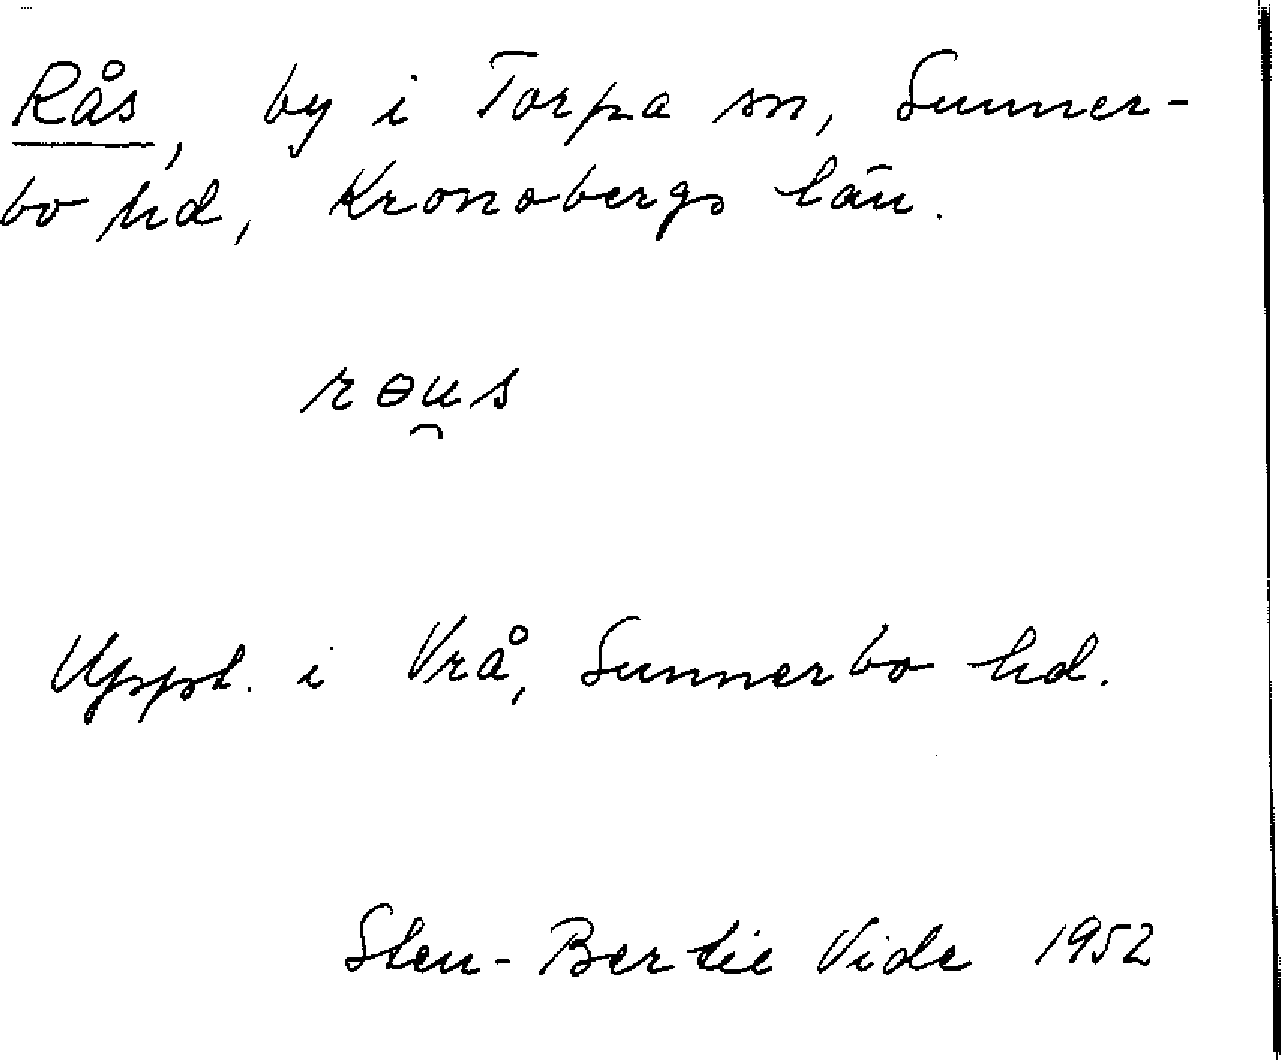 Rås, by i Torpa sn, Sunner-
bo hd, Kronobergs län.
rɵu̯s
Uppt. i Vrå, Sunnerbo hd.
Sten-Bertil Vide 1952